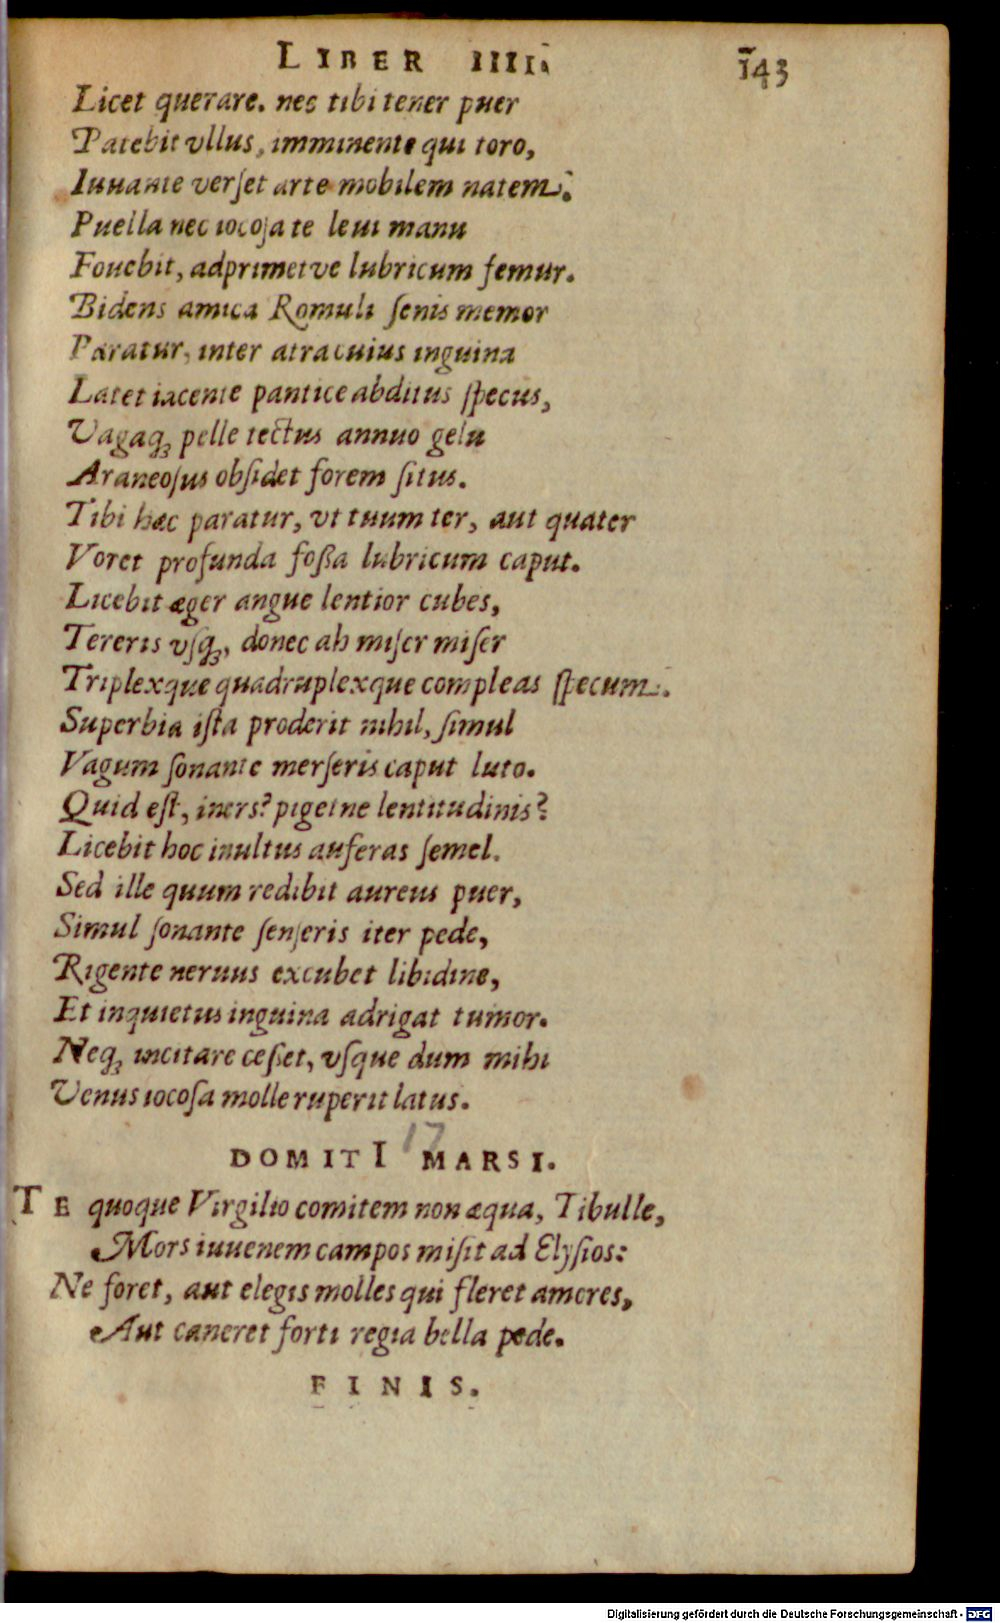 LIBER IIII.
143
Licet querare. nec tibi tener puer
Patebit vllus, imminente qui toro,
Iuuante verſet arte mobilem natem.
Puella nec iocoſa te leui manu
Fouebit, adprimetve lubricum femur.
Bidens amica Romuli ſenis memor
Paratur, inter atra cuius inguina
Latet iacente pantice abditus ſpecus,
Vagaq; pelle tectus annuo gelu
Araneoſus obſidet forem ſitus.
Tibi hæc paratur, vt tuum ter, aut quater
Voret profunda foßa lubricum caput.
Licebit æger angue lentior cubes,
Tereris vſq;, donec ah miſer miſer
Triplexque quadruplexque compleas ſpecum.
Superbia iſta proderit nihil, ſimul
Vagum ſonante merſeris caput luto.
Quid eſt, iners? pigetne lentitudinis?
Licebit hoc inultus auferas ſemel.
Sed ille quum redibit aureus puer,
Simul ſonante ſenſeris iter pede,
Rigente neruus excubet libidine,
Et inquietus inguina adrigat tumor.
Neq; incitare ceßet, vſque dum mihi
Venus iocoſa molle ruperit latus.
17
DOMITI MARSI.
TE quoque Virgilio comitem non æqua, Tibulle,
Mors iuuenem campos miſit ad Elyſios:
Ne foret, aut elegis molles qui fleret amores,
Aut caneret forti regia bella pede.
FINIS.
Digitalisierung gefördert durch die Deutsche Forschungsgemeinschaft - DFG